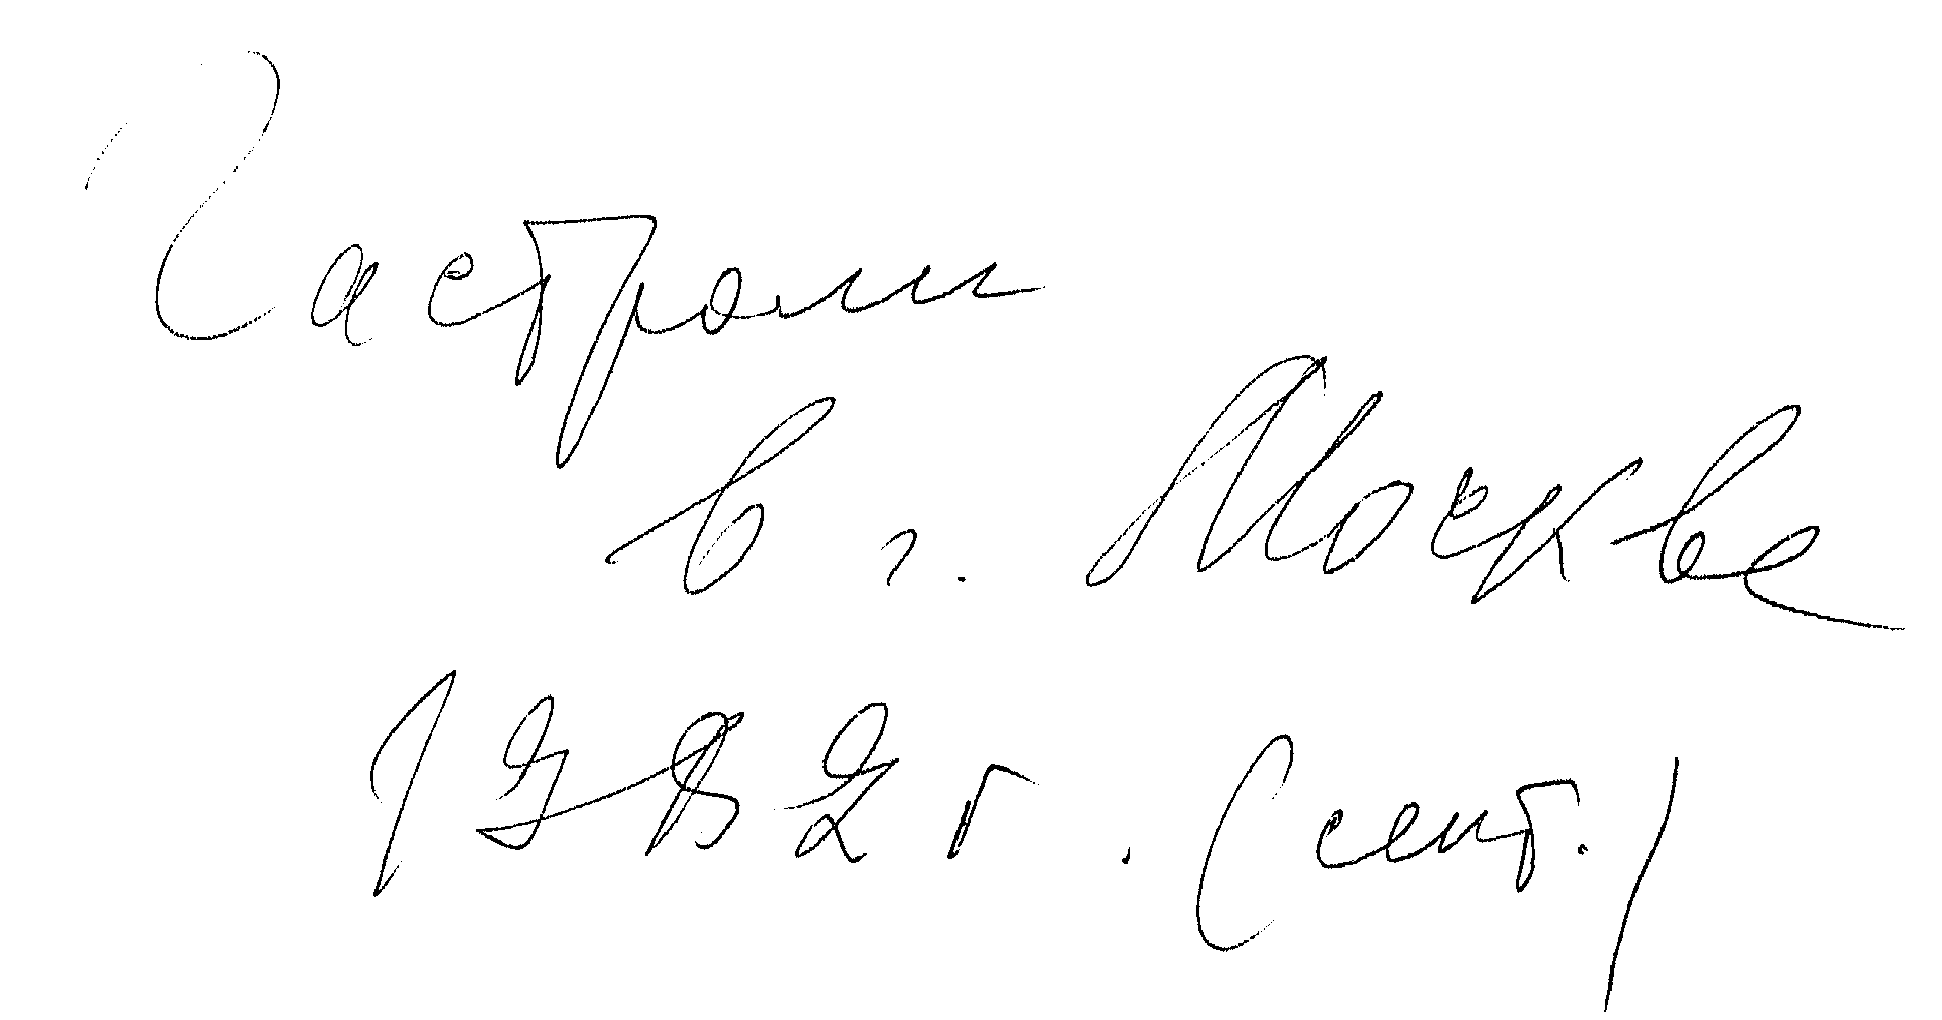 Гастроли
в г. Москве
1982 г. (сент.)